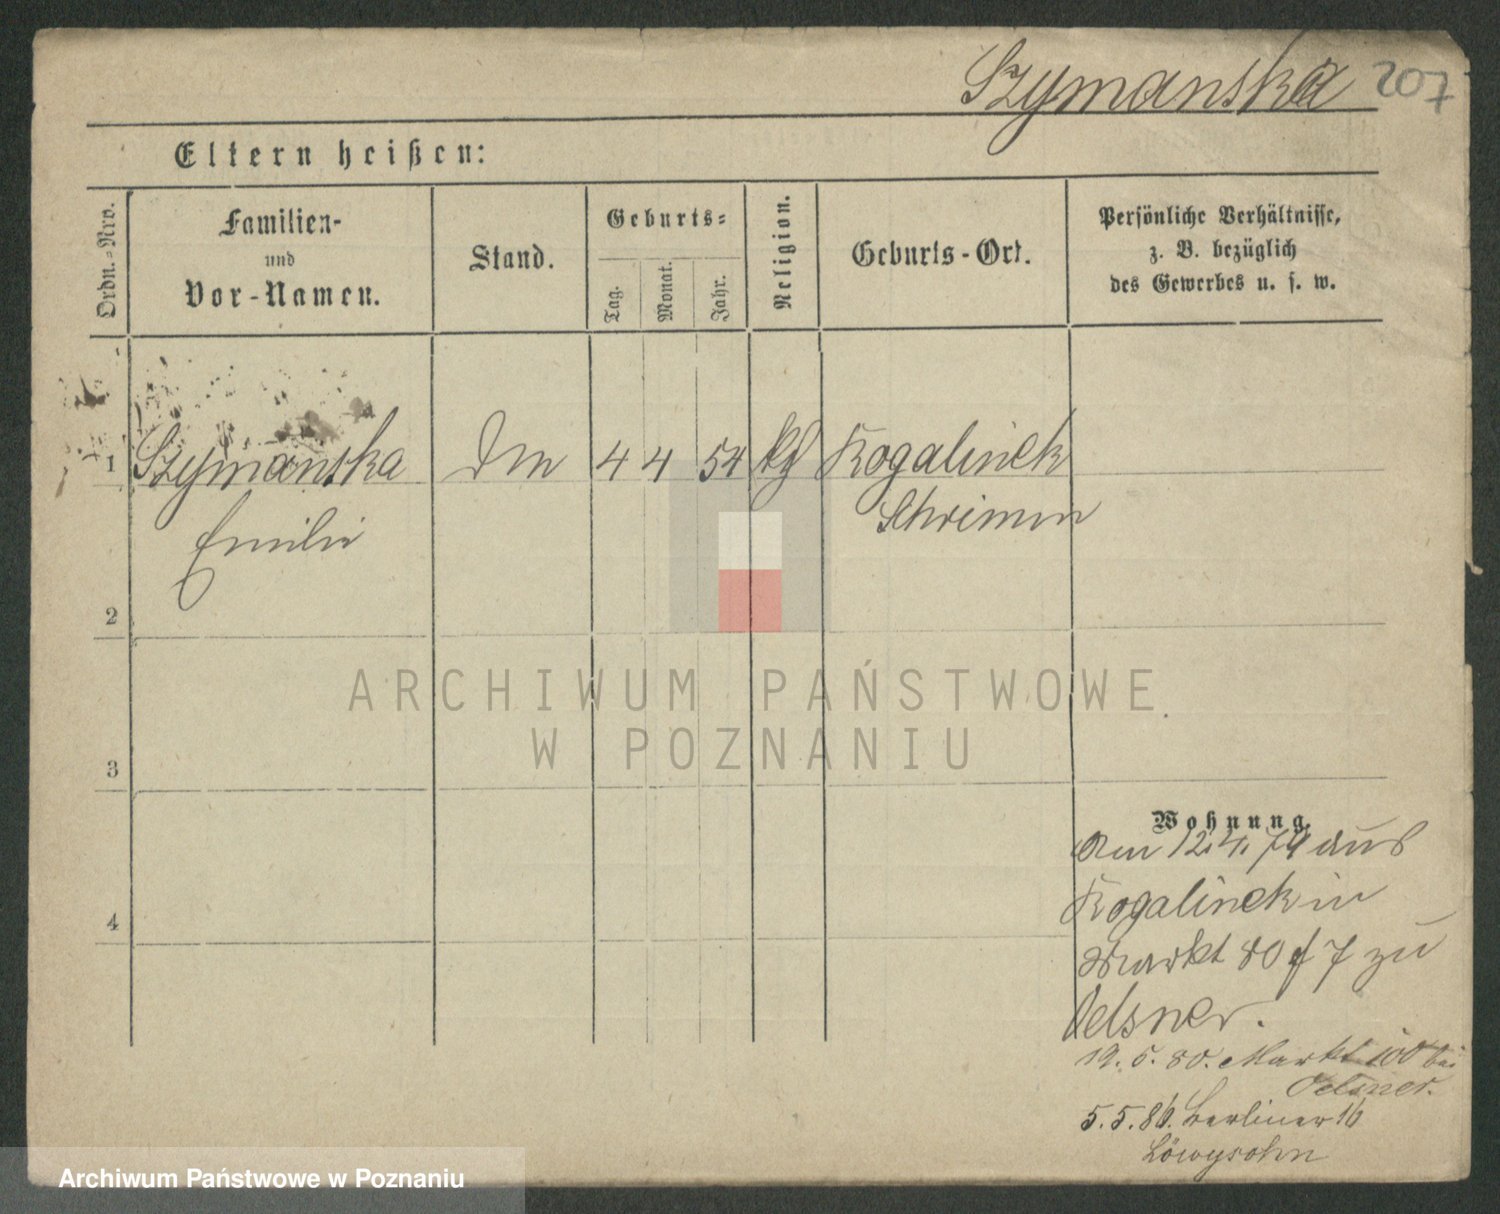 Szymanska 207
Eltern heißen:
Ordn.-Nro.
Familien-
und
Vor-Namen.
Stand.
Geburts-
Tag.
Monat.
Jahr.
Religion.
Geburts-Ort.
Persönliche Verhältnisse,
z. B. bezüglich
des Gewerbes u. s. w.
1 Szymanska 4 4 54 Rogalinek
Emilie Schrimm
2
3
4
Wohnung.
Am 12.4.79 aus
Rogalinek in
Markt 80 7 zu
Oelsner.
19.5.80. Markt 100 bei
Oelsner.
5.5.81. Berliner 16
Löwysohn
ARCHIWUM PAŃSTWOWE
W POZNANIU
Archiwum Państwowe w Poznaniu